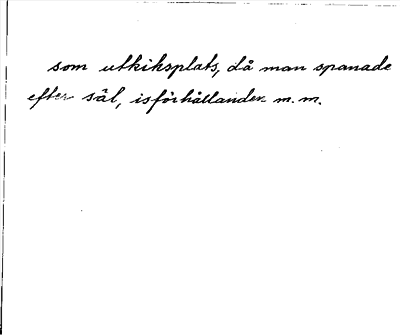 som utkiksplats, då man spanade
efter säl, isförhållanden m. m.